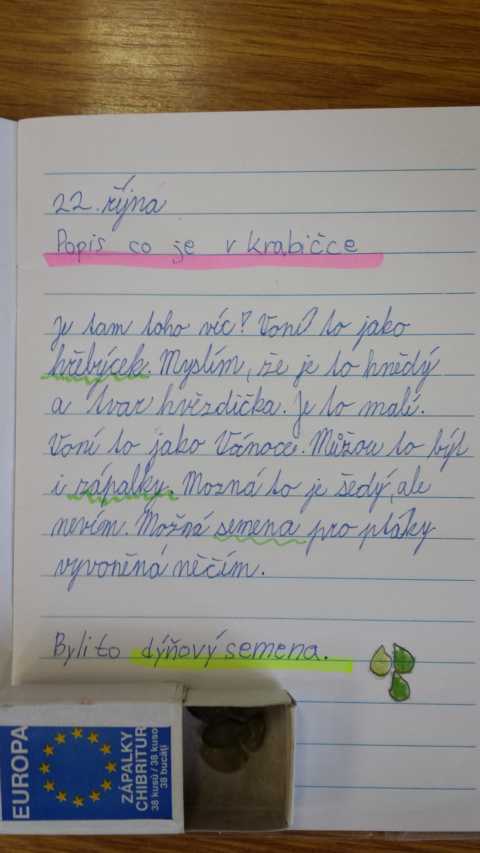 22. října
Popis co je v krabičce
Je tam toho víc? Voní to jako
hřebýček. Myslím, že je to hnědý
a tvar hvězdička. Je to malí.
Voní to jako Vánoce. Můžou to být
i zápalky. Mozná to je šedý, ale
nevím. Možná semena pro ptáky
vyvoněná něčím.
Byli to dýňový semena.
EUROPA
ZÁPALKY
CHIBRITURI
38 kusů / 38 kusov
38 bucăți